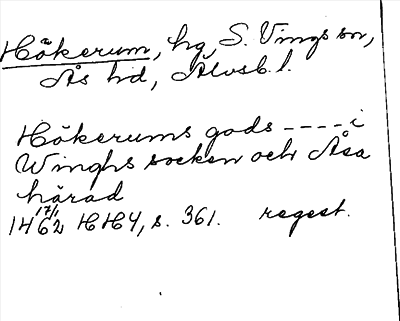 Hökerum, hg, S. Vings sn,
Ås hd, Älvsb. l.
Hökerums gods ---- i
Winghs socken och Åsa
härad
17/1
1462 HH4, s. 361. regest.